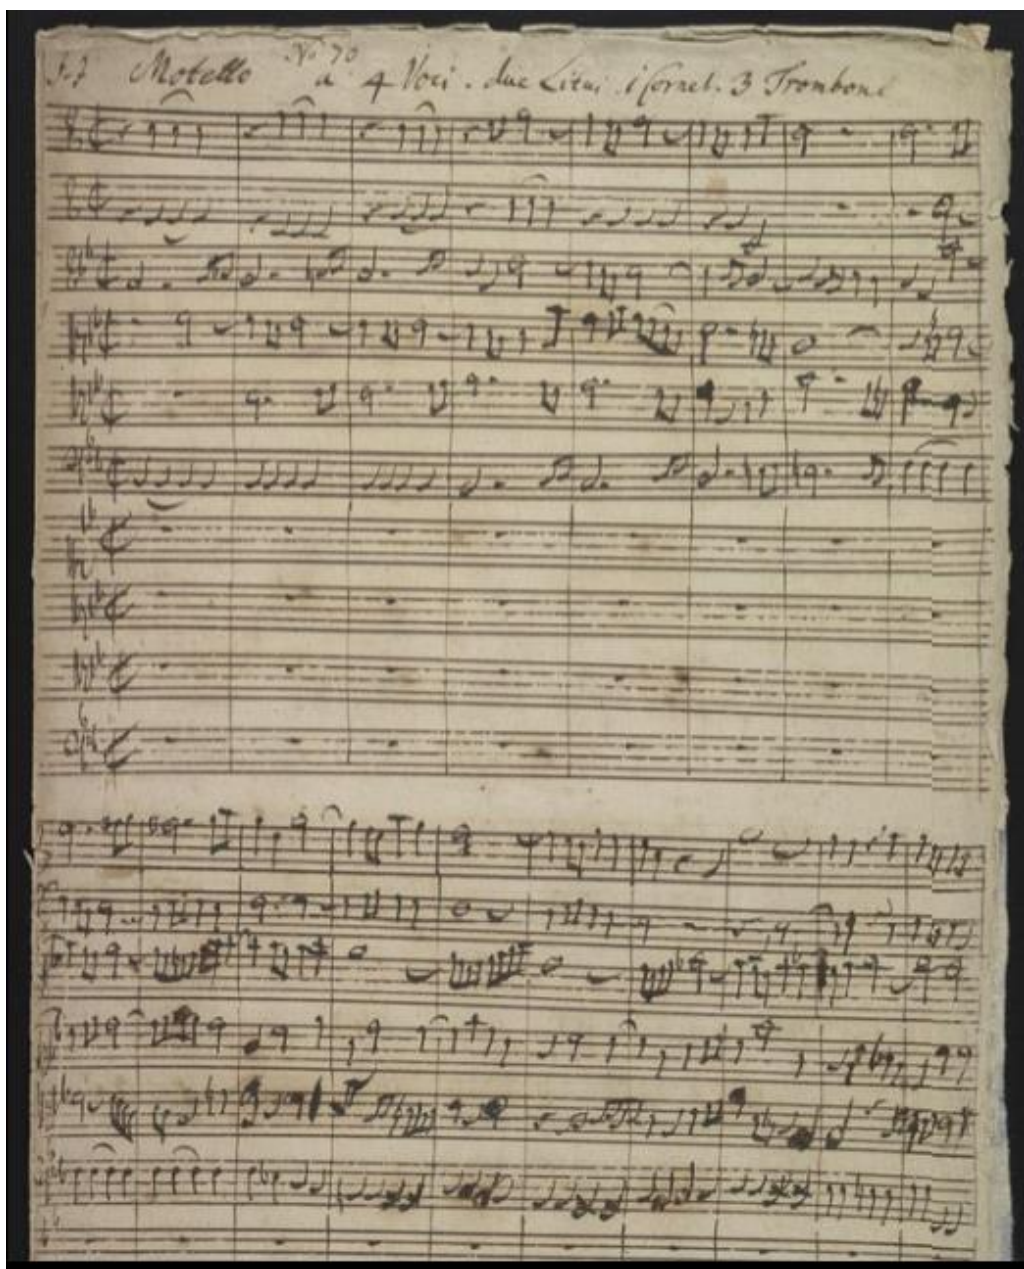 J. J. Motetto No 70 a 4 Voci. due Litui. 1 Cornet. 3 Trombone